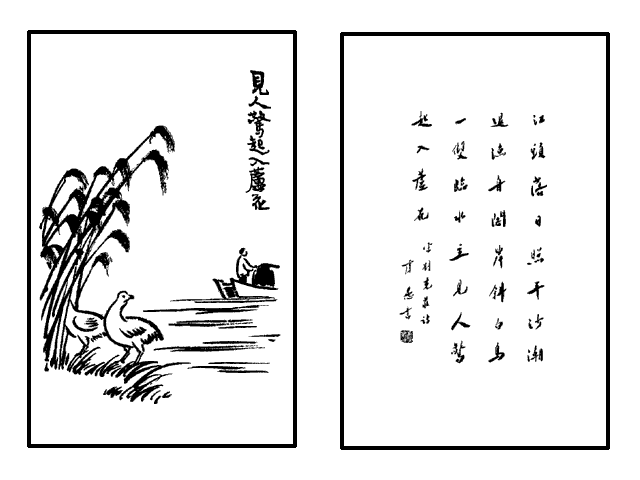 見人驚起入蘆花
江頭落日照平沙潮
退漁舟閣岸斜白鳥
一雙臨水立見人驚
起入蘆花
虞愚書